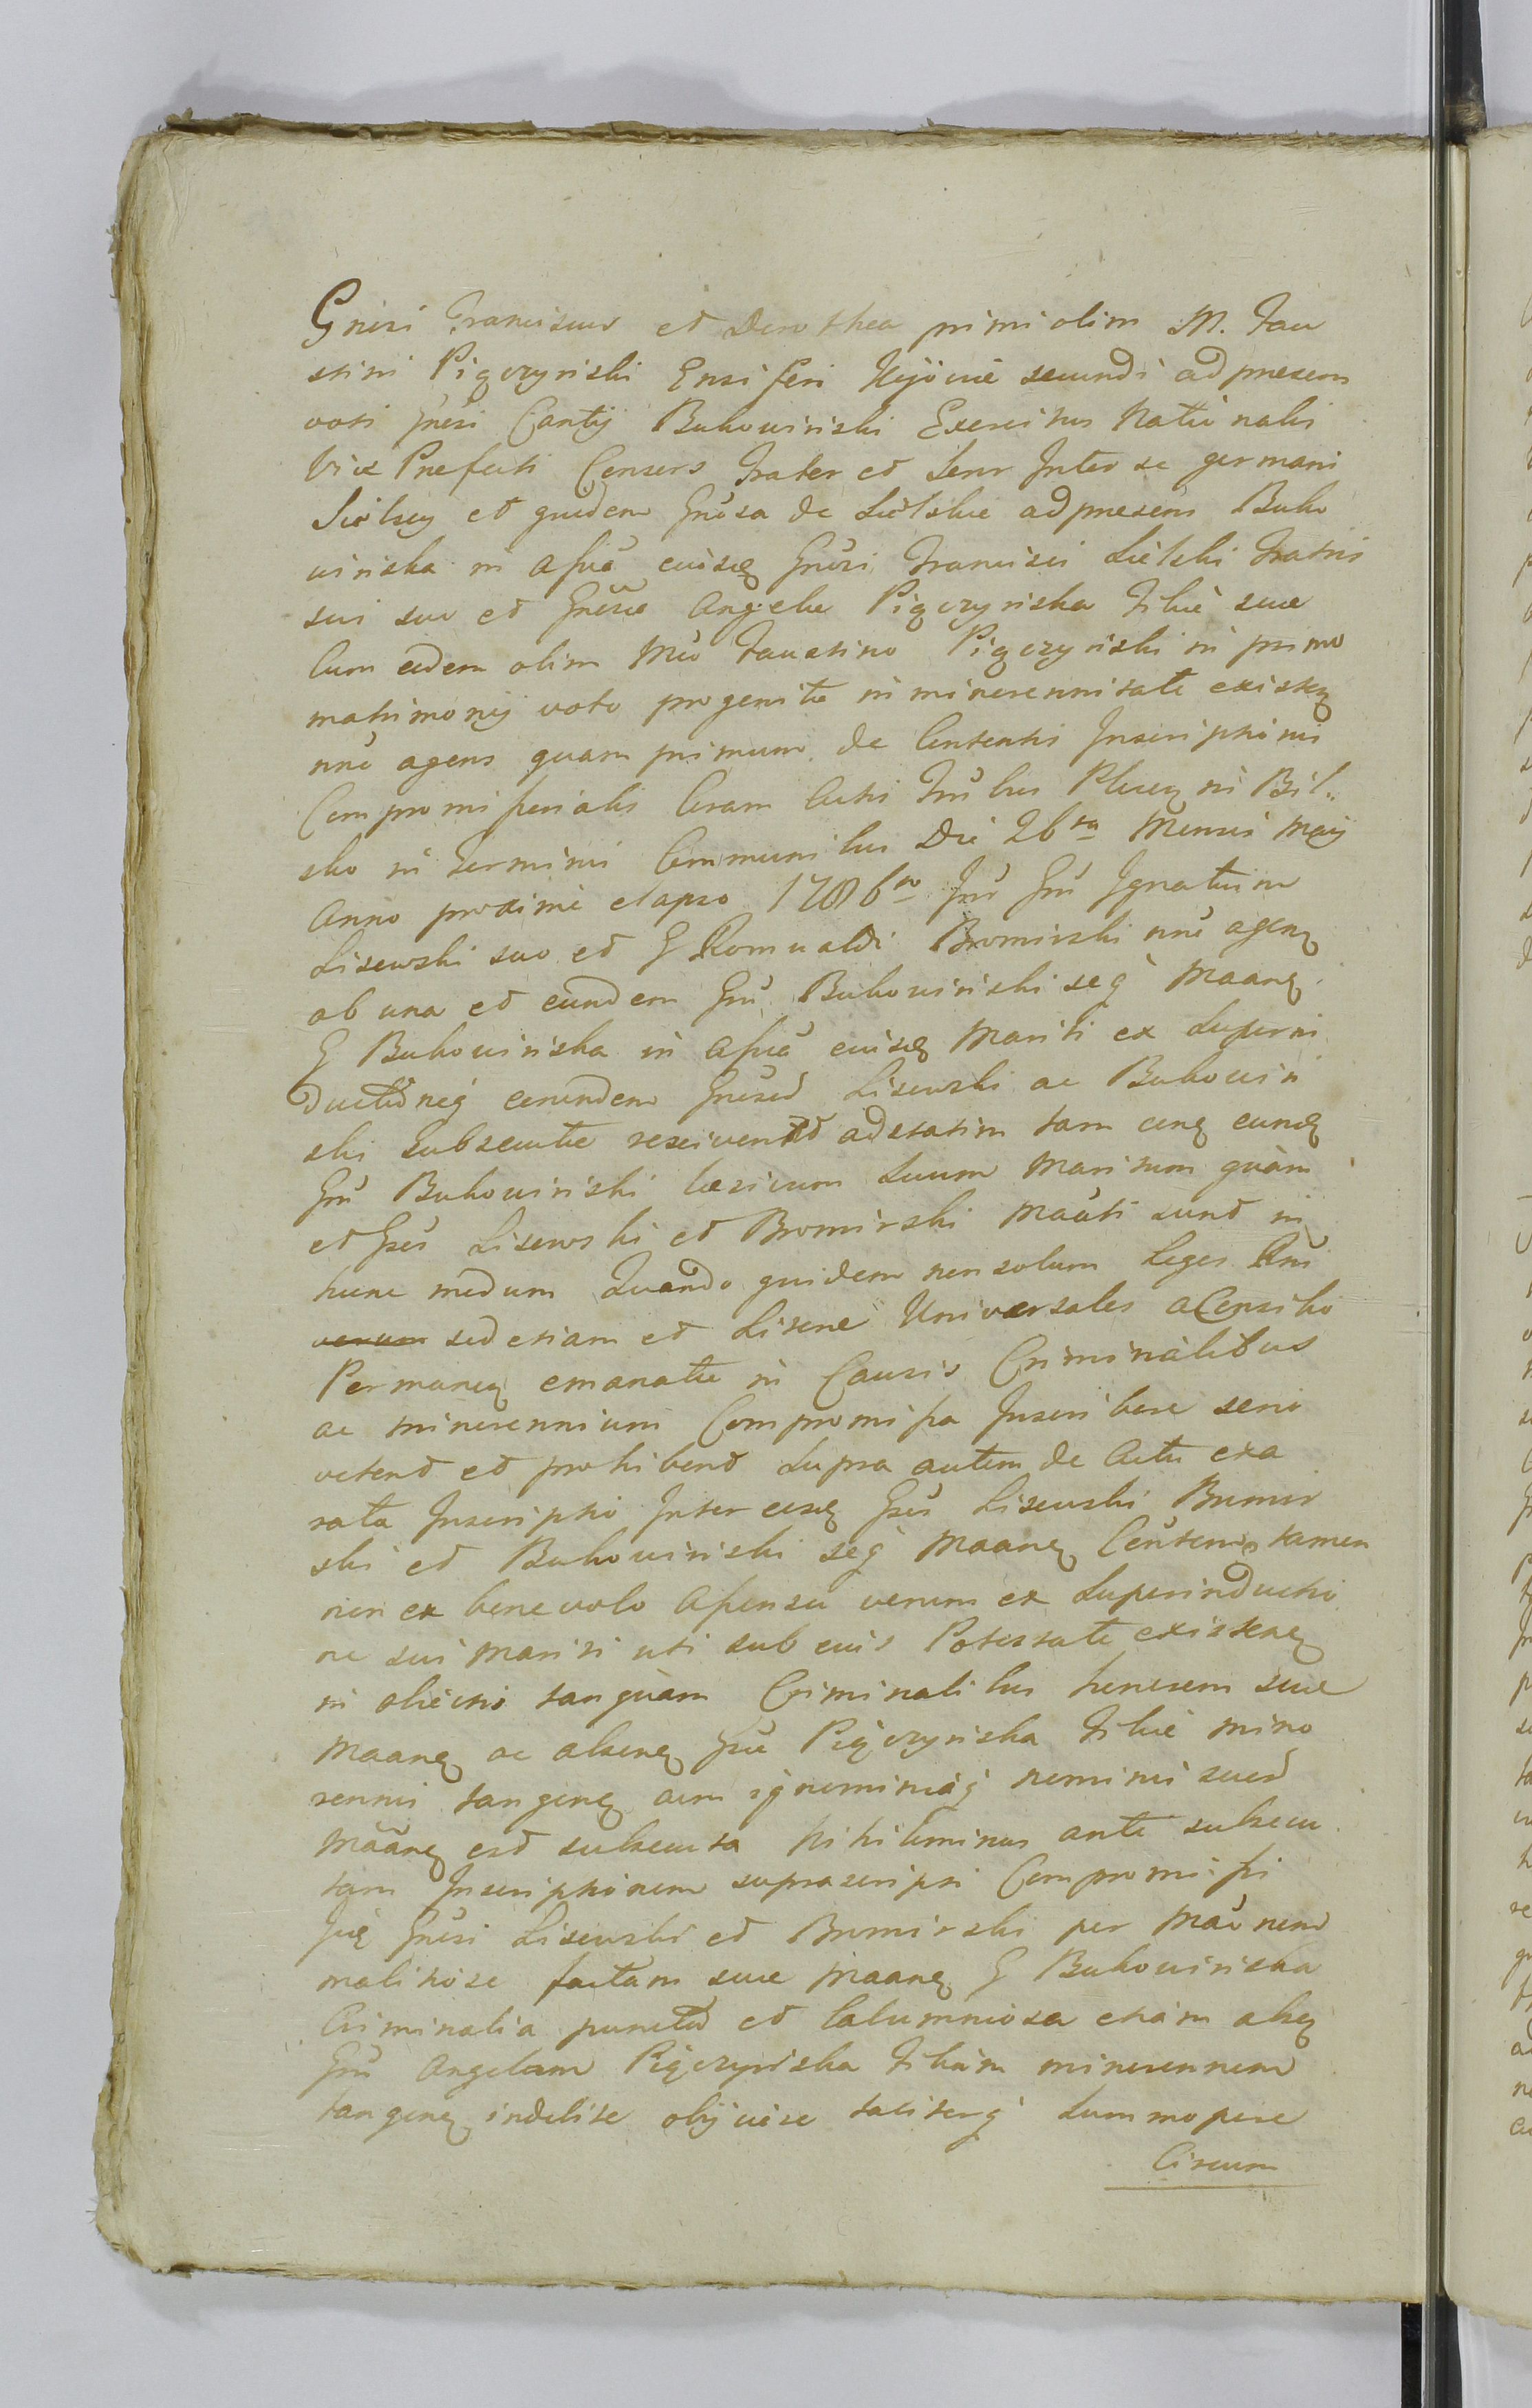 Gnrsi Franciscus et Dorothea primi olim M. Fau
stini Pigczyriski Ensiferi Kijoviē secundi ad presens
voti Gnrsi Cantij Bukowiriski Exercitus Nationalis
Vice Prefecti Consors Frater et Soror Inter se germani
Sielscy et quidem Gnosa de Sielskie ad presens Buko
wiriska in assīā euisdę Gnrsi Francisci Sielski Fratris
sui suo et Gnrsæ Angelæ Pigczyriska Filiæ suæ
Cum eodem olim Mco Faustino Pigczyriski in primo
matrimonij voto progenitæ in minorennitate existeņ
nne agens quam primum de Contentis Inscriptionis
Compromissorialis Coram Actis Trībus Ploceņ in Biel„
sko in Terminis Communibus Die 26ta Mensis Maij
Anno proxime elapso 1786to Inr Gnr Ignatium
Lisewski suo et G Romualdi Bromirski nne agenņ
ab una et eundem Gnr Bukowiriski seq Maanņ
G Bukowiriska in assīā euisdę Mariti ex Superin
ductīoneq eorundem Gnrsor Lisewski ac Bukowiri
ski Subsecutæ resciverit adstatim tam cņq eundę
Gnr Bukowiriski Cæsicum Suum Maritum quàm
et Gses Lisewski et Bromirski Maāti sunt in
hunc modum Quando quidem non solum Leges Rni
verum sed etiam et Litteræ Universales a Consilio
Permaneņ emanatæ in Causis Criminalibus
ac minorennium Compromissa Inscribere serio
vetent et prohibent Supra autem de Actu exa
rata Inscriptio Inter eosdę Gses Lisewski Bromir
ski et Bukowiriski seq Maanę Contenta tamen
non ex benevolo assensu verum ex Superinductio
ne sui Mariti uti sub euis Potestate existeņ
in obiectis tanquàm Criminalibus honorem suæ
Maanę ac absenę Gsæ Pigczyriska Filiæ mino
rennis tangenę cum ignominiâq nominis suor
Maanę est subsecuta Nihilominus ante subsecu
tam Inscriptionem suprascripti Compromissi
Iidę Gnrsi Lisewski et Bromirski per Mâonem
malitiose factam suæ Maanę G Bukowiriska
Criminalia puncta et Calumniosa etiam absę
Gnr Angelam Pigczyriska Filiam minorennem
tangenę indebite objicere tacitoq Summopere
Circum